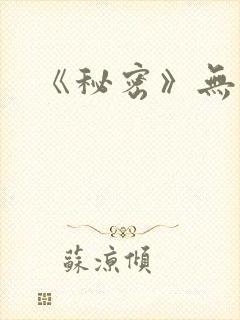 《秘密》無
蘇涼傾